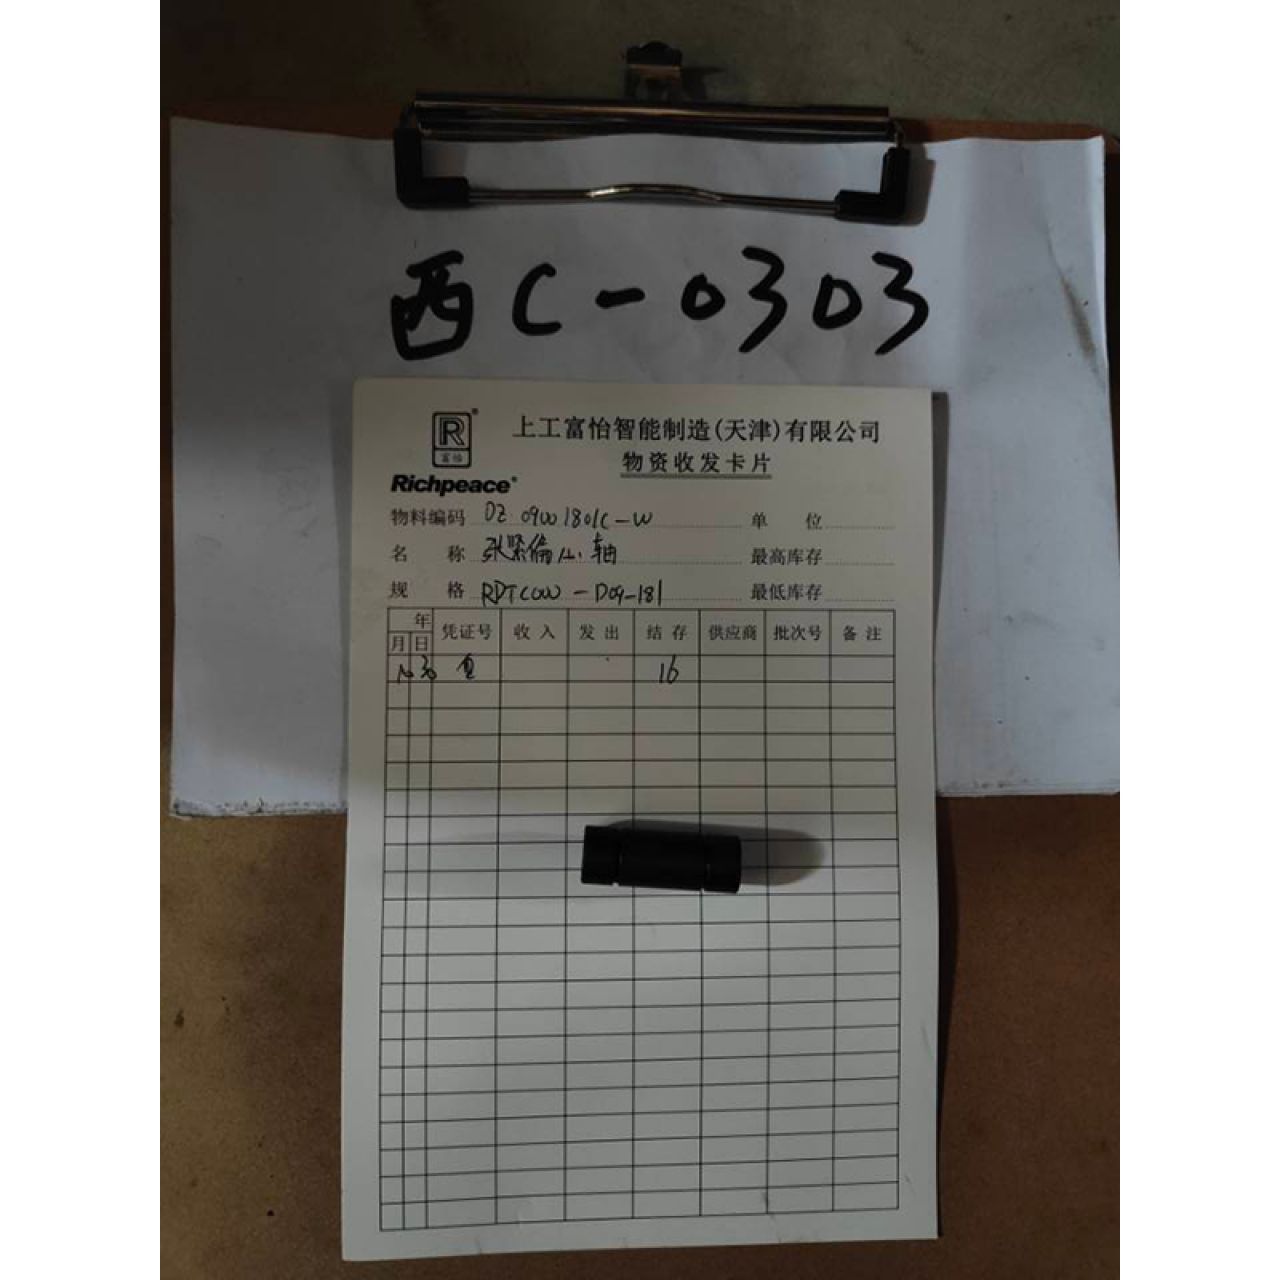 西C-0303
R®
富怡
Richpeace®
上工富怡智能制造(天津)有限公司
物资收发卡片
物料编码 DZ 09001801C-W 单 位
名 称 张紧偏心轴 最高库存
规 格 RDTC00W-D09-181 最低库存
年
月 日 凭证号 收 入 发 出 结 存 供应商 批次号 备 注
30 16